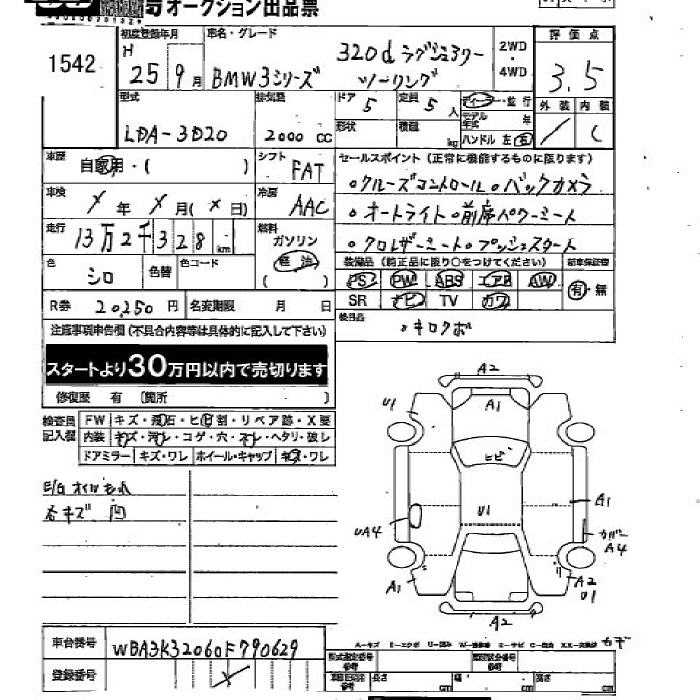 オークション出品票
1542
初度登録年月 車名・グレード 評価点
H 25年 9月 BMW3シリーズ 320d ラグジュアリー ツーリング 2WD・4WD 3.5
外装 内装
/ C
型式 排気量 ドア 定員
LDA-3D20 2000cc 5 5人
形状 積載 kg
ディーゼル・並行
モデル年式 年
ハンドル 左 右
車歴 自家用・( ) シフト FAT
セールスポイント (正常に機能するものに限ります)
。クルーズコントロール。バックカメラ
車検 X年 X月(X日) 冷房 AAC
。オートライト。前席パワーシート
走行 13万2千328km 燃料 ガソリン 軽油 ( )
。クロレザーシート。プッシュスタート
色 シロ 色替 色コード
装備品 (純正品に限り○をつけてください) 新車保証書
PS PW ABS エアB AW 有・無
SR ナビ TV カワ
R券 20250円 名変期限 月 日
後日品
。キロクボ
注意事項申告欄(不具合内容等は具体的に記入して下さい)
スタートより30万円以内で売切ります
修復歴 有 〔箇所 〕
検査員記入欄
FW キズ・飛石・ヒビ割・リペア跡・X要
内装 キズ・汚レ・コゲ・穴・スレ・ヘタリ・破レ
ドアミラー キズ・ワレ ホイール・キャップ キズ・ワレ
E/Gオイルもれ
各キズ 凹
A2
U1
A1
ヒビ
U1
A1
UA4
カバー
A4
A1
A2
U1
A2
カギ
車台番号 WBA3K32060F790629
登録番号 X
型式指定番号 類別区分番号
長さ cm 幅 cm 高さ cm